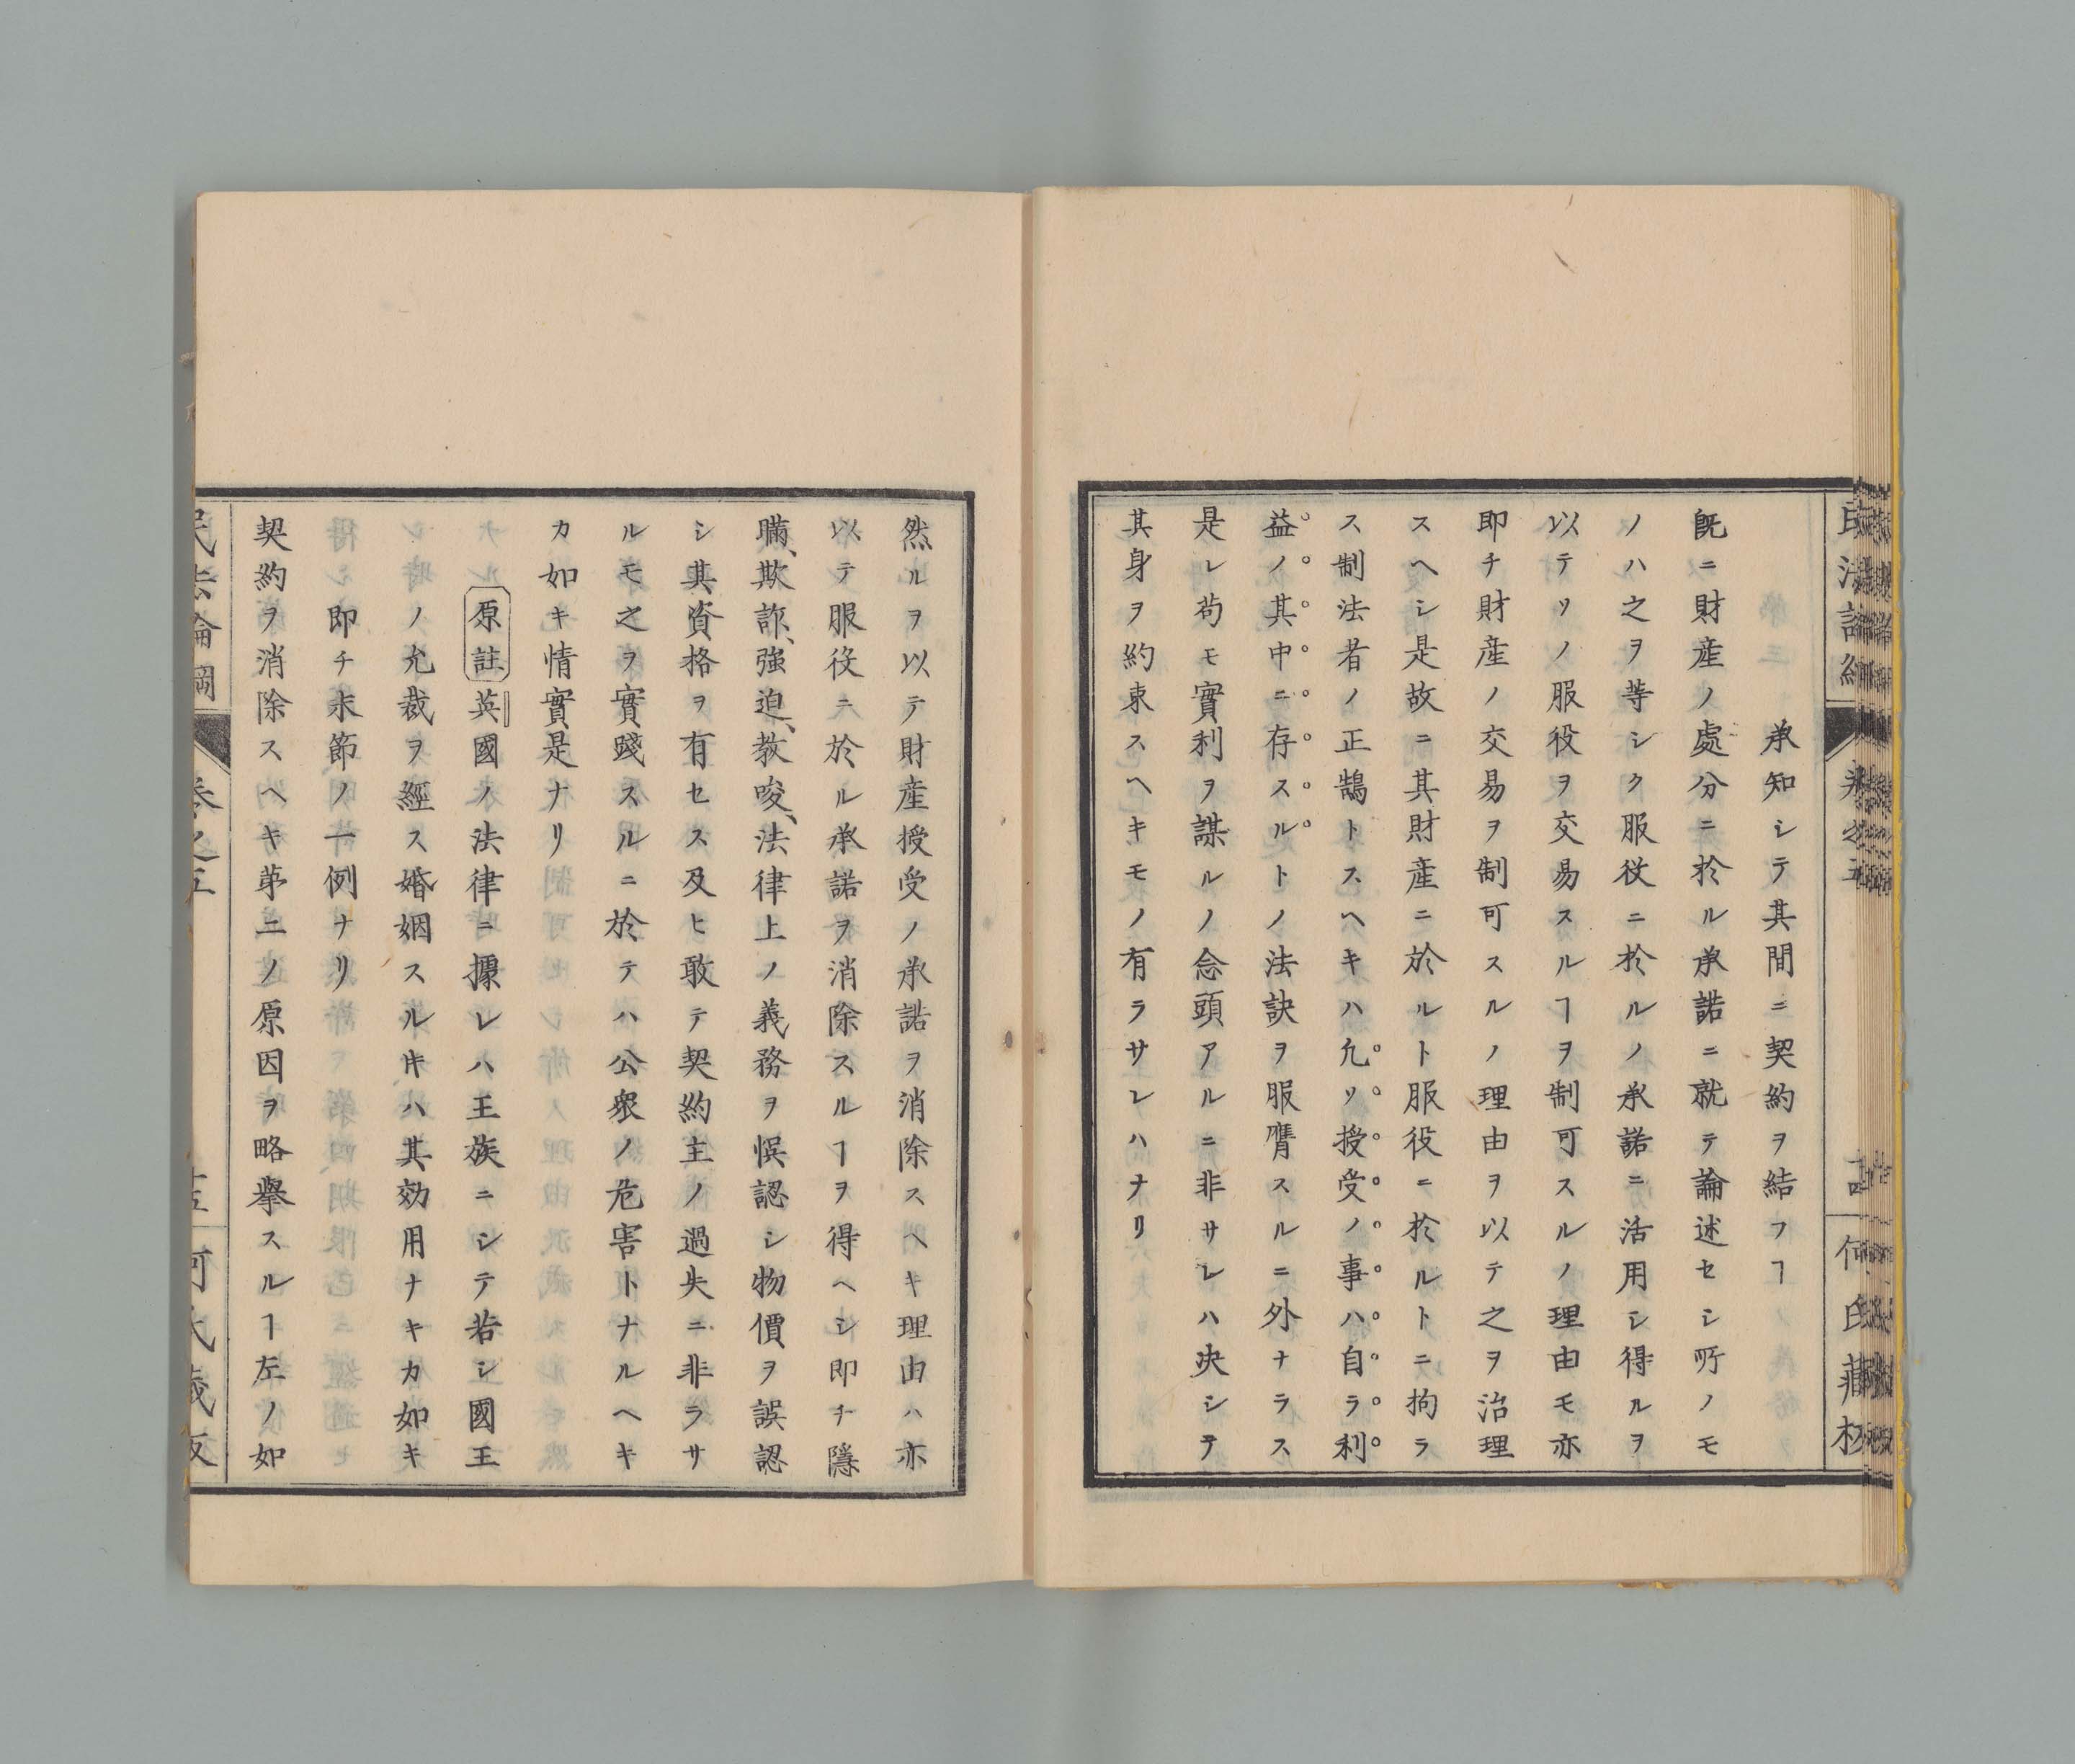 承知シテ其間ニ契約ヲ結フヿ
旣ニ財産ノ處分ニ於ル承諾ニ就テ論述セシ所ノモ
ノハ之ヲ等シク服役ニ於ルノ承諾ニ活用シ得ルヲ
以テソノ服役ヲ交易スルヿヲ制可スルノ理由モ亦
即チ財産ノ交易ヲ制可スルノ理由ヲ以テ之ヲ治理
スヘシ是故ニ其財産ニ於ルト服役ニ於ルトニ拘ラ
ス制法者ノ正鵠トスヘキハ凢ソ授受ノ事ハ自ラ利
益ノ其中ニ存スルトノ法訣ヲ服膺スルニ外ナラス
是レ苟モ實利ヲ謀ルノ念頭アルニ非サレハ决シテ
其身ヲ約束スヘキモノ有ラサレハナリ
然ルヲ以テ財産授受ノ承諾ヲ消除スヘキ理由ハ亦
以テ服役ニ於ル承諾ヲ消除スルヿヲ得ヘシ即チ隱
瞞、欺詐、強迫、敎唆、法律上ノ義務ヲ悞認シ物價ヲ誤認
シ其資格ヲ有セス及ヒ敢テ契約主ノ過失ニ非ラサ
ルモ之ヲ實踐スルニ於テハ公衆ノ危害トナルヘキ
カ如キ情實是ナリ
原註英國ノ法律ニ據レハ王族ニシテ若シ國王
ノ允裁ヲ經ス婚姻スル𪜈ハ其効用ナキカ如キ
即チ末節ノ一例ナリ
契約ヲ消除スヘキ苐二ノ原因ヲ略擧スルヿ左ノ如
民法論綱
卷之五
十五
何氏藏版